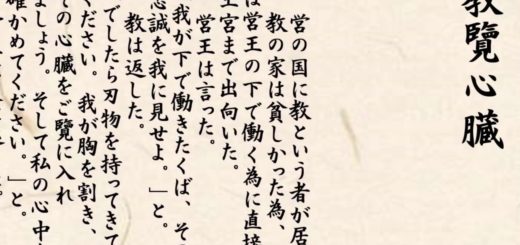 教覽心臓
営の国に教という者が居
教の家は貧しかった為、
は営王の下で働く為に直接
王宮まで出向いた。
営王は言った。
我が下で働きたくば、そ
忠誠を我に見せよ。」と。
教は返した。
でしたら刃物を持ってきて
ください。我が胸を割き、
ての心臓をご覧に入れ
ましょう。そして私の心中
確かめてください。」と。